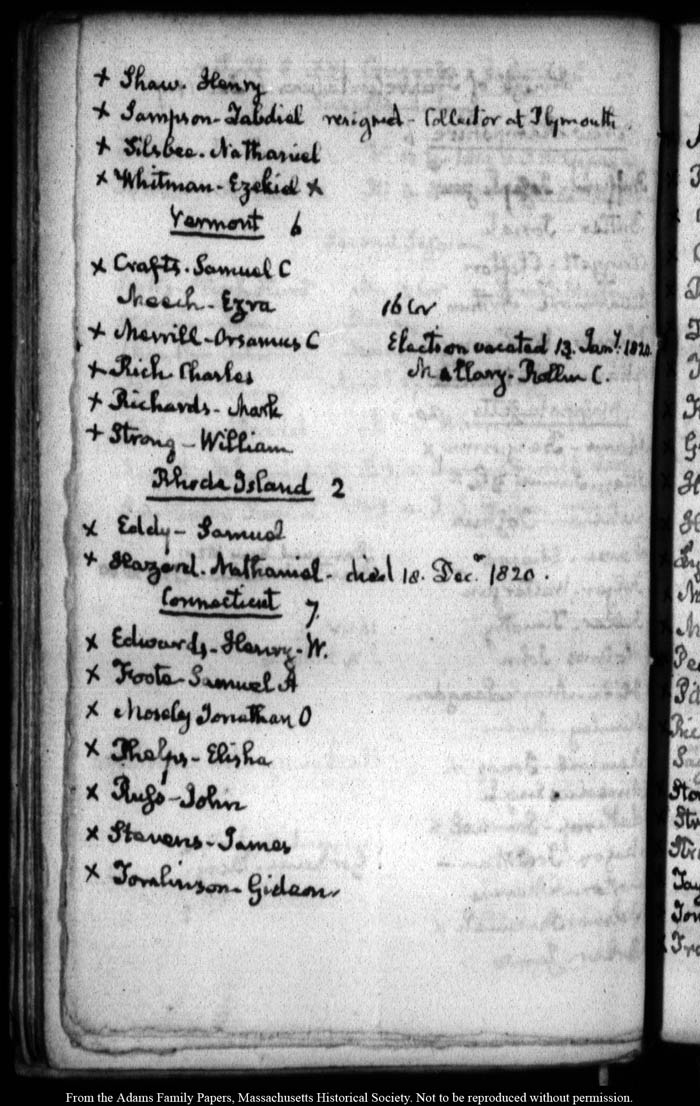 x Shaw. Henry
x Sampson-Zabdiel resigned - Collector at Plymouth.
x Silsbee. Nathaniel
x Whitman-Ezekiel x
Vermont 6
x Crafts. Samuel C
Meech-Ezra 16 Cor
x Merrill-Orsamus C Election vacated 13. Jany. 1820.
x Rich Charles Mallary. Rollin C.
x Richards-Mark
+ Strong-William
Rhode Island 2
x Eddy-Samuel
x Hazard. Nathaniel - died 18. Decr 1820.
Connecticut 7.
x Edwards-Henry-W.
x Foote-Samuel A
x Mosely Jonathan O
x Phelps-Elisha
x Russ-John
x Stevens-James
x Tomlinson-Gideon
From the Adams Family Papers, Massachusetts Historical Society. Not to be reproduced without permission.